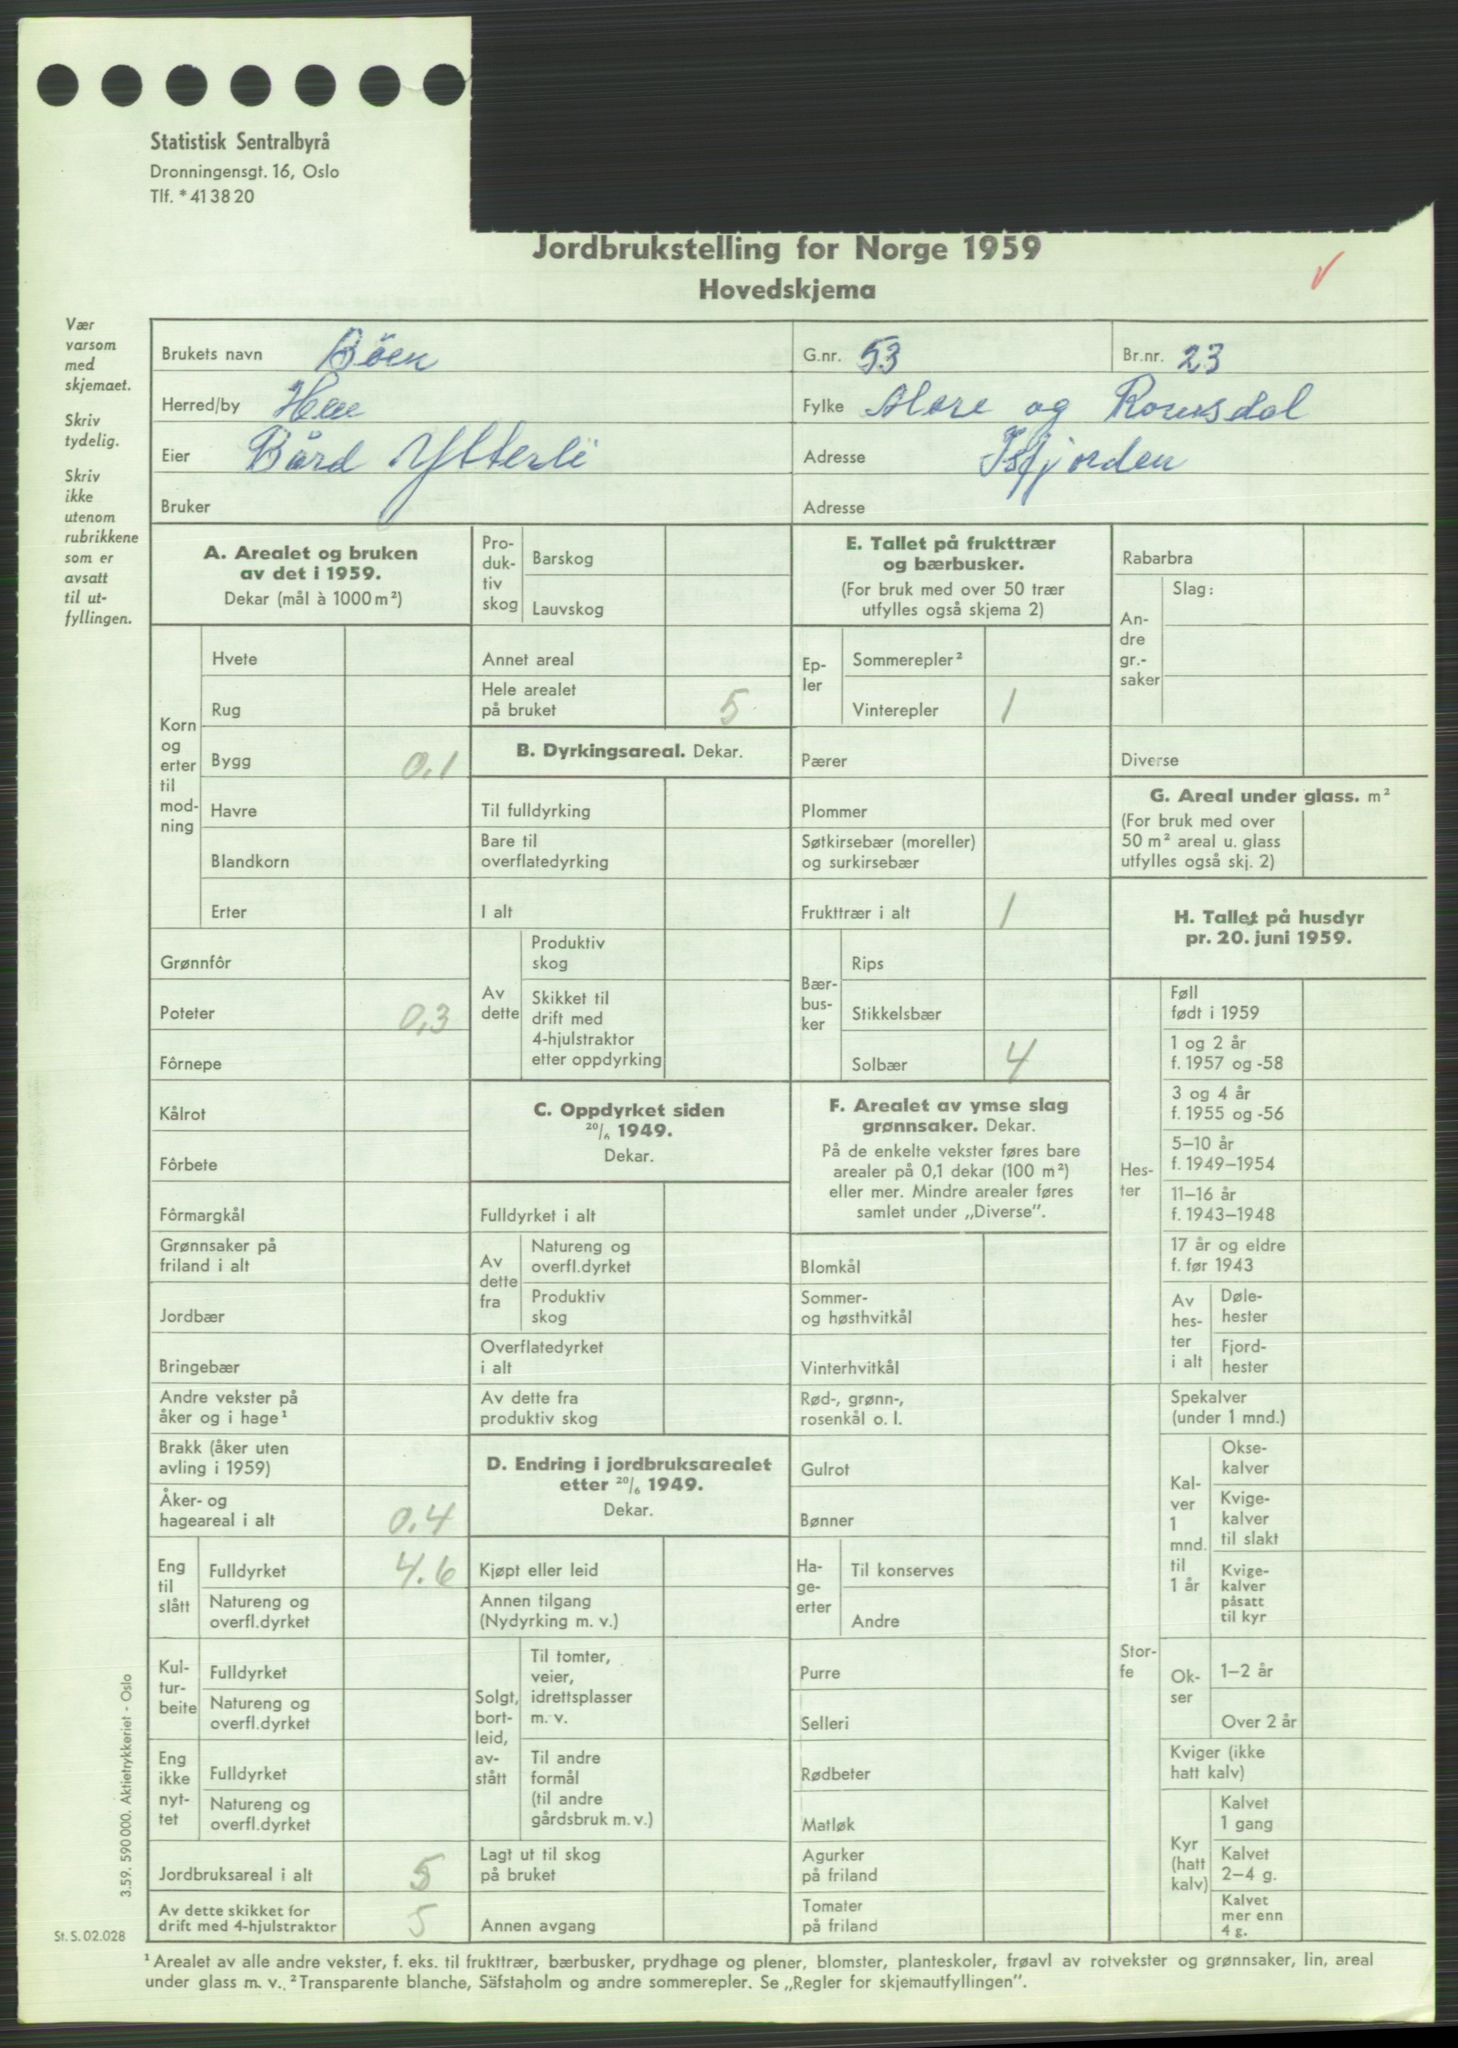 Statistisk Sentralbyrå
Dronningensgt. 16, Oslo
Tlf. *41 38 20
Jordbrukstelling for Norge 1959
Hovedskjema
Vær
varsom
med
skjemaet.
Skriv
tydelig.
Skriv
ikke
utenom
rubrikkene
som er
avsatt
til ut-
fyllingen.
Brukets navn Böen
G.nr. 53
Br.nr. 23
Herred/by Hen
Fylke Møre og Romsdal
Eier Bård Ytterli
Adresse Isfjorden
Bruker
Adresse
A. Arealet og bruken
av det i 1959.
Dekar (mål à 1000 m²)
Korn
og
erter
til
mod-
ning
Hvete
Rug
Bygg 0,1
Havre
Blandkorn
Erter
Grønnfôr
Poteter 0,3
Fôrnepe
Kålrot
Fôrbete
Fôrmargkål
Grønnsaker på
friland i alt
Jordbær
Bringebær
Andre vekster på
åker og i hage¹
Brakk (åker uten
avling i 1959)
Åker- og
hageareal i alt 0.4
Eng
til
slått
Fulldyrket 4.6
Natureng og
overfl.dyrket
Kul-
tur-
beite
Fulldyrket
Natureng og
overfl.dyrket
Eng
ikke
nyt-
tet
Fulldyrket
Natureng og
overfl.dyrket
Jordbruksareal i alt 5
Av dette skikket for
drift med 4-hjulstraktor 5
Pro-
duk-
tiv
skog
Barskog
Lauvskog
Annet areal
Hele arealet
på bruket 5
B. Dyrkingsareal. Dekar.
Til fulldyrking
Bare til
overflatedyrking
I alt
Av
dette
Produktiv
skog
Skikket til
drift med
4-hjulstraktor
etter oppdyrking
C. Oppdyrket siden
20/6 1949.
Dekar.
Fulldyrket i alt
Av
dette
fra
Natureng og
overfl.dyrket
Produktiv
skog
Overflatedyrket
i alt
Av dette fra
produktiv skog
D. Endring i jordbruksarealet
etter 20/6 1949.
Dekar.
Kjøpt eller leid
Annen tilgang
(Nydyrking m. v.)
Solgt,
bort-
leid,
av-
stått
Til tomter,
veier,
idrettsplasser
m. v.
Til andre
formål
(til andre
gårdsbruk m. v.)
Lagt ut til skog
på bruket
Annen avgang
E. Tallet på frukttrær
og bærbusker.
(For bruk med over 50 trær
utfylles også skjema 2)
Ep-
ler
Sommerepler²
Vinterepler 1
Pærer
Plommer
Søtkirsebær (moreller)
og surkirsebær
Frukttrær i alt 1
Bær-
bus-
ker
Rips
Stikkelsbær
Solbær 4
F. Arealet av ymse slag
grønnsaker. Dekar.
På de enkelte vekster føres bare
arealer på 0,1 dekar (100 m²)
eller mer. Mindre arealer føres
samlet under „Diverse”.
Blomkål
Sommer-
og høsthvitkål
Vinterhvitkål
Rød-, grønn-,
rosenkål o. l.
Gulrot
Bønner
Ha-
ge-
erter
Til konserves
Andre
Purre
Selleri
Rødbeter
Matløk
Agurker
på friland
Tomater
på friland
Rabarbra
An-
dre
gr.-
saker
Slag:
Diverse
G. Areal under glass. m²
(For bruk med over
50 m² areal u. glass
utfylles også skj. 2)
H. Tallet på husdyr
pr. 20. juni 1959.
Hes-
ter
Føll
født i 1959
1 og 2 år
f. 1957 og -58
3 og 4 år
f. 1955 og -56
5–10 år
f. 1949–1954
11–16 år
f. 1943–1948
17 år og eldre
f. før 1943
Av
hes-
ter
i alt
Døle-
hester
Fjord-
hester
Stor-
fe
Spekalver
(under 1 mnd.)
Kal-
ver
1
mnd.
til
1 år
Okse-
kalver
Kvige-
kalver
til slakt
Kvige-
kalver
påsatt
til kyr
Ok-
ser
1–2 år
Over 2 år
Kviger (ikke
hatt kalv)
Kyr
(hatt
kalv)
Kalvet
1 gang
Kalvet
2–4 g.
Kalvet
mer enn
4 g.
3.59. 590 000. Aktietrykkeriet - Oslo
St. S. 02.028
¹ Arealet av alle andre vekster, f. eks. til frukttrær, bærbusker, prydhage og plener, blomster, planteskoler, frøavl av rotvekster og grønnsaker, lin, areal
under glass m. v. ² Transparente blanche, Säfstaholm og andre sommerepler. Se „Regler for skjemautfyllingen”.